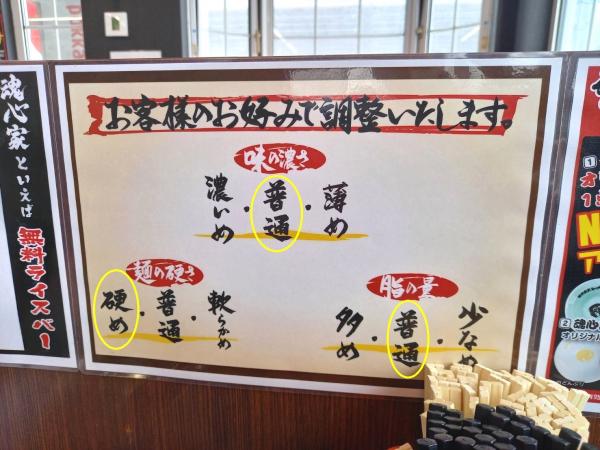 お客様のお好みで調整いたします。
味の濃さ
濃いめ・普通・薄め
麺の硬さ
硬め・普通・軟らかめ
脂の量
多め・普通・少なめ
魂心家といえば
無料ライスバー
1
2
魂心
オリジナル